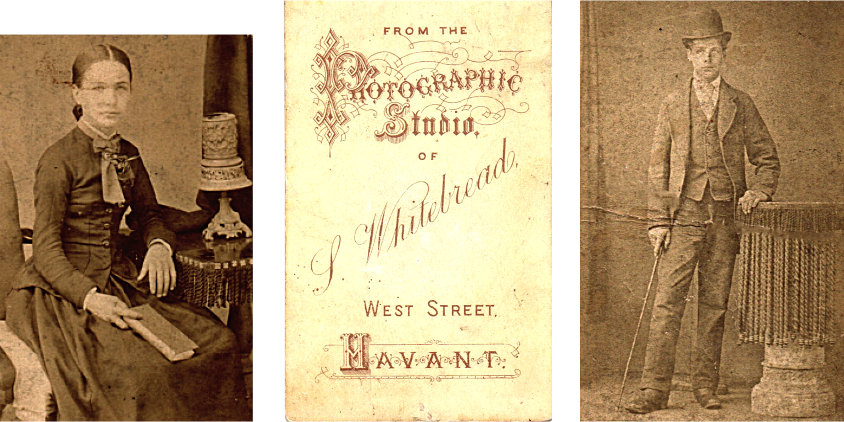 FROM THE
PHOTOGRAPHIC
Studio,
OF
S. Whitebread,
WEST STREET,
HAVANT.